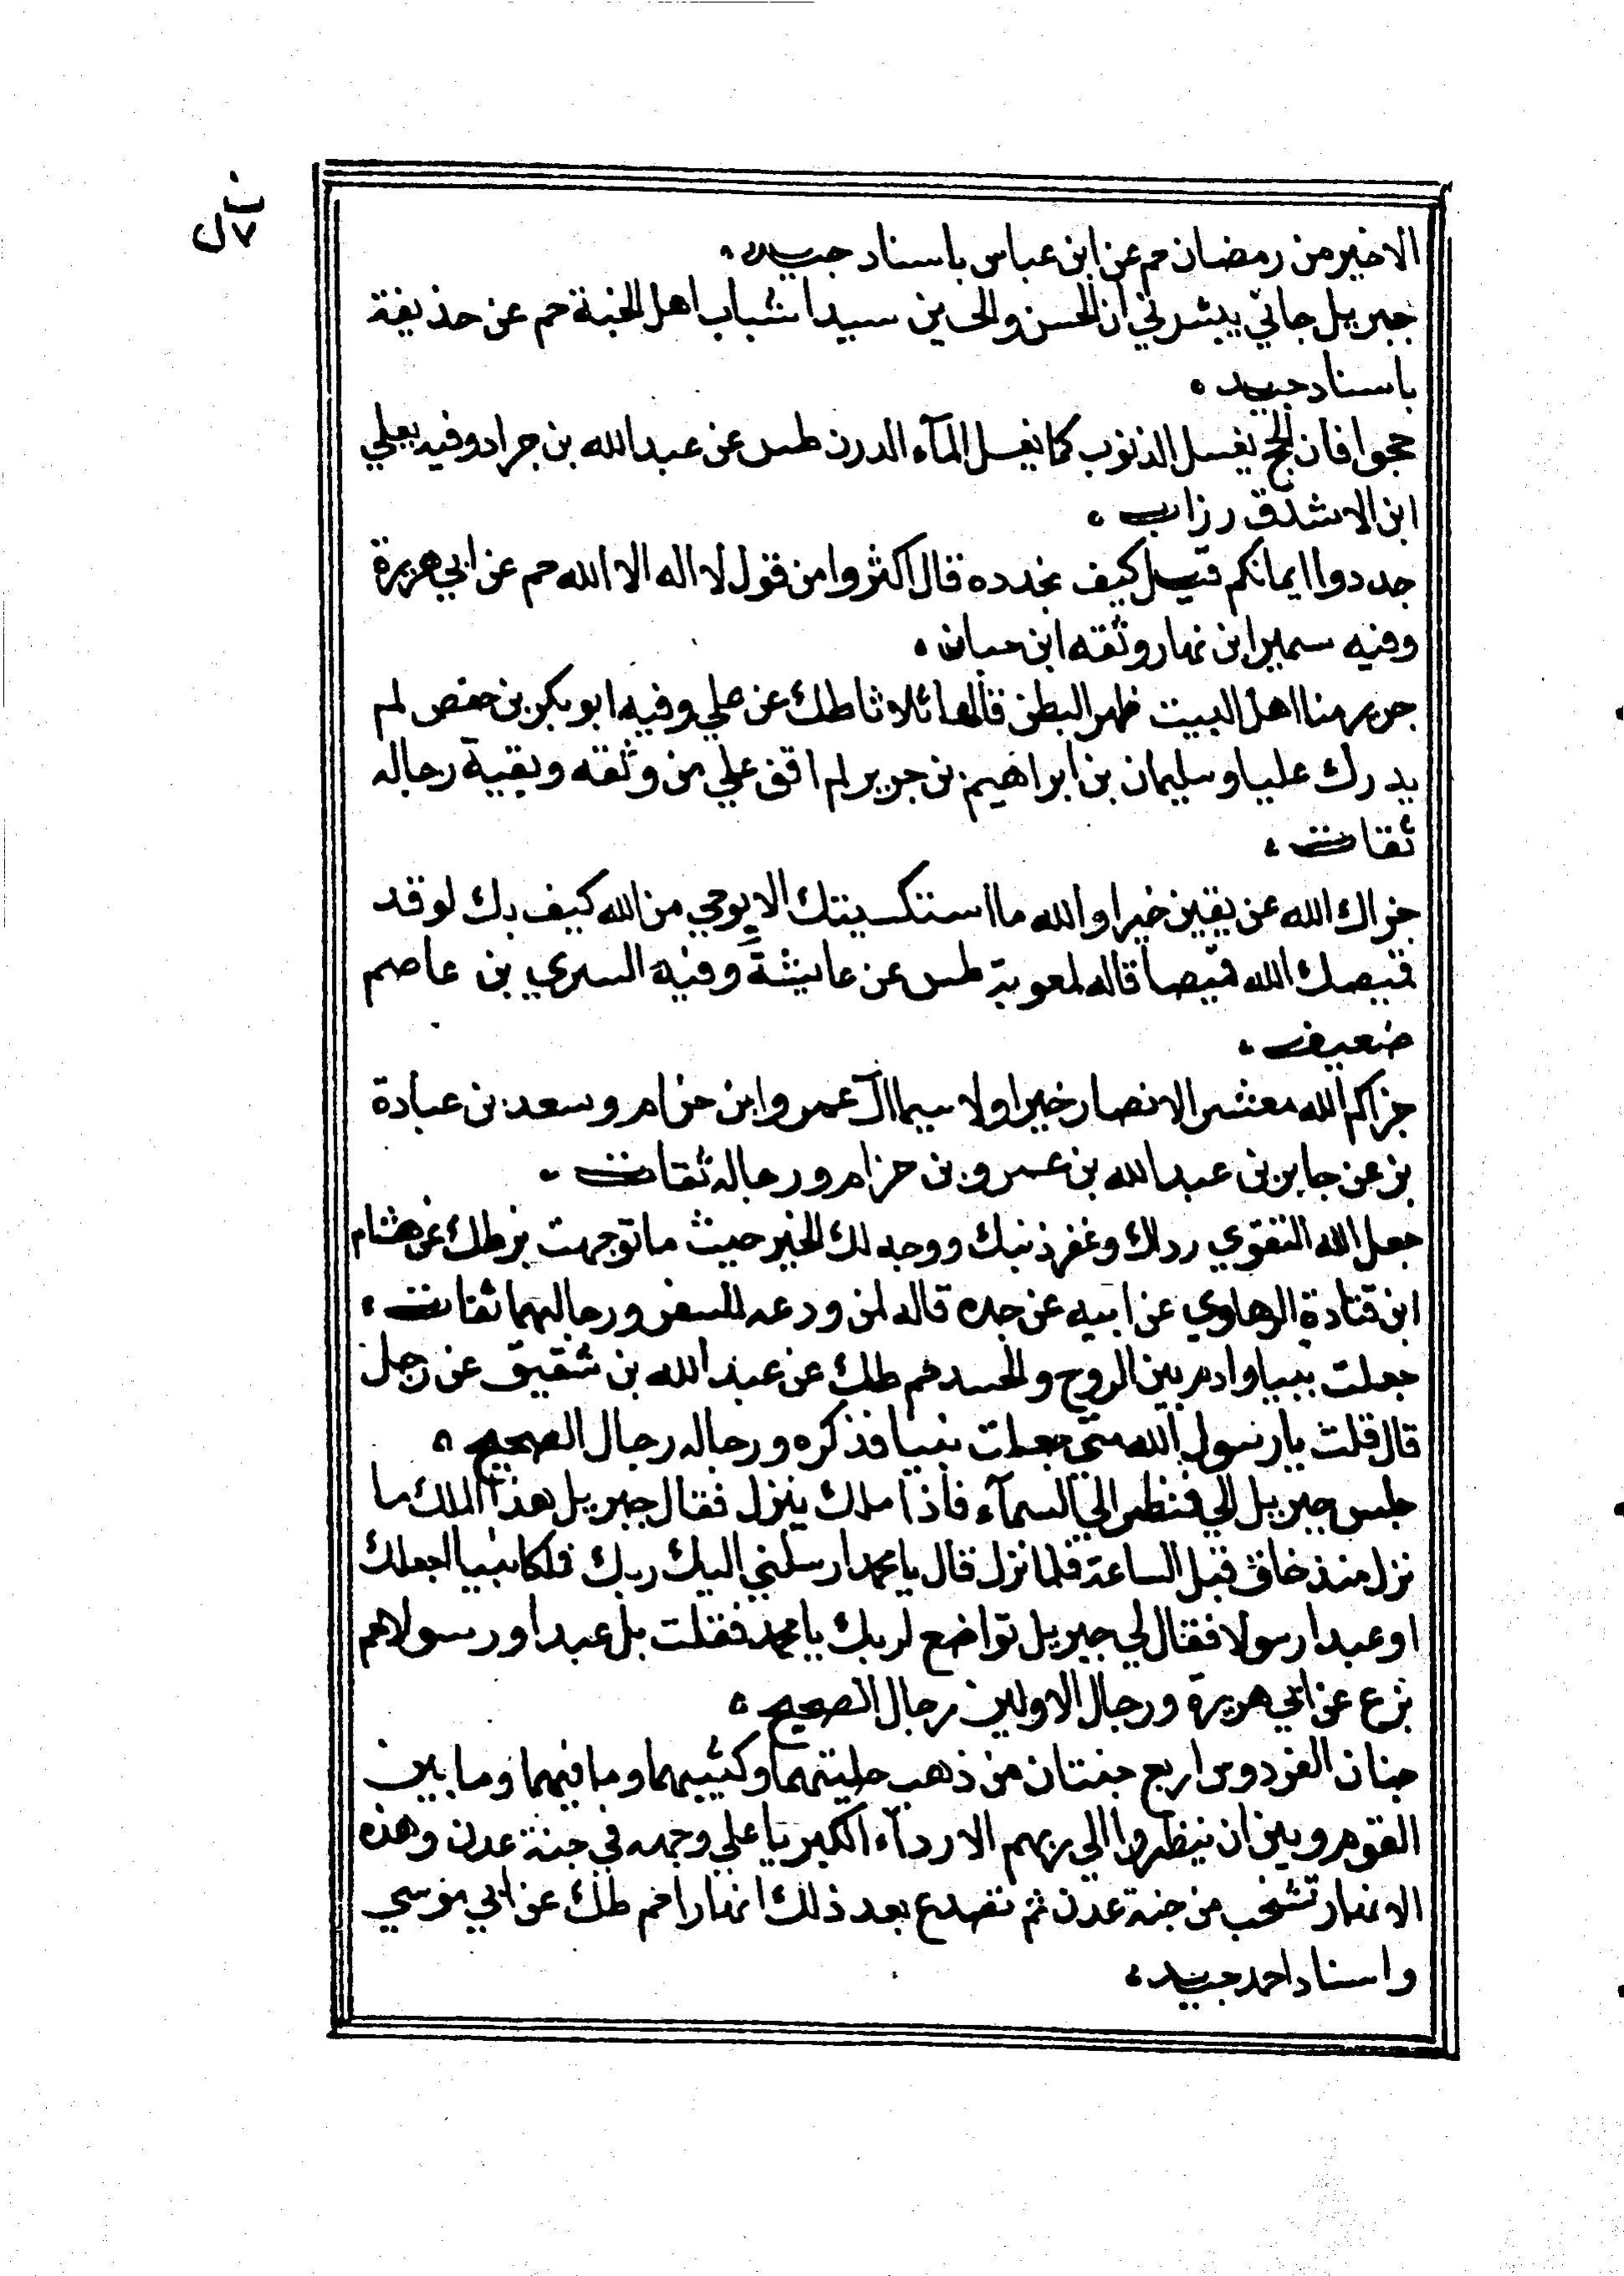 الاخير من رمضان حم عن ابن عباس باسناد جيد
جبريل جاني يبشرني ان الحسن والحسين سيدا شباب اهل الجنة حم عن حذيفة
باسناد جيد
حجوا فان الحج يغسل الذنوب كما يغسل المآء الدرن طس عن عبد الله بن جراد وفيه يعلي
ابن الاشدق
جددوا ايمانكم قيل كيف نجدده قال اكثروا من قول لا اله الا الله حم عن ابي هريرة
وفيه سمير ابن نهار وثقه ابن حبان
جرير منا اهل البيت ظهر البطن قالها ثلاثا طك عن علي وفيه ابو بكر بن حفص لم
يدرك عليا وسليمان بن ابراهيم بن جرير لم اقف علي من وثقه وبقية رجاله
ثقات
جزاك الله عن خيرا والله ما استكسبتك الا بوحي من الله كيف بك لو قد
قمصك الله قميصا قاله لمعوية طس عن عايشة وفيه السري بن عاصم
ضعيف
جزاكم الله معشر الانصار خيرا ولا سيما آل عمرو ابن حزام وسعد بن عبادة
بز عن جابر بن عبد الله بن عمرو بن حزام ورجاله ثقات
جعل الله التقوي ردآك وغفر ذنبك ووجه لك الخير حيث ما توجهت بز طك عن هشام
ابن قتادة الرهاوي عن ابيه عن جده قاله لمن ودعه للسفر ورجالهما ثقات
جعلت نبيا وادم بين الروح والجسد حم طك عن عبد الله بن شقيق عن رجل
قال قلت يا رسول الله متي جعلت نبيا فذكره ورجاله رجال الصحيح
جلس جبريل الي فنظر الي السمآء فاذا ملك ينزل فقال جبريل هذا الملك ما
نزل منذ خلق قبل الساعة فلما نزل قال يا محمد ارسلني اليك ربك فملكا نبيا اجعلك
او عبدا رسولا فقال لي جبريل تواضع لربك يا محمد فقلت بل عبدا ورسولا حم
بز ع عن ابي هريرة ورجال الاولين رجال الصحيح
جنان الفردوس اربع جنتان من ذهب حليتهما وكتيبهما وما فيهما وما بين
القوم وبين ان ينظروا الي ربهم الا ردآء الكبريا علي وجهه في جنة عدن وهذه
الانهار تشخب من جنة عدن ثم تصدع بعد ذلك انهارا حم طك عن ابي موسي
واسناد احمد جيد